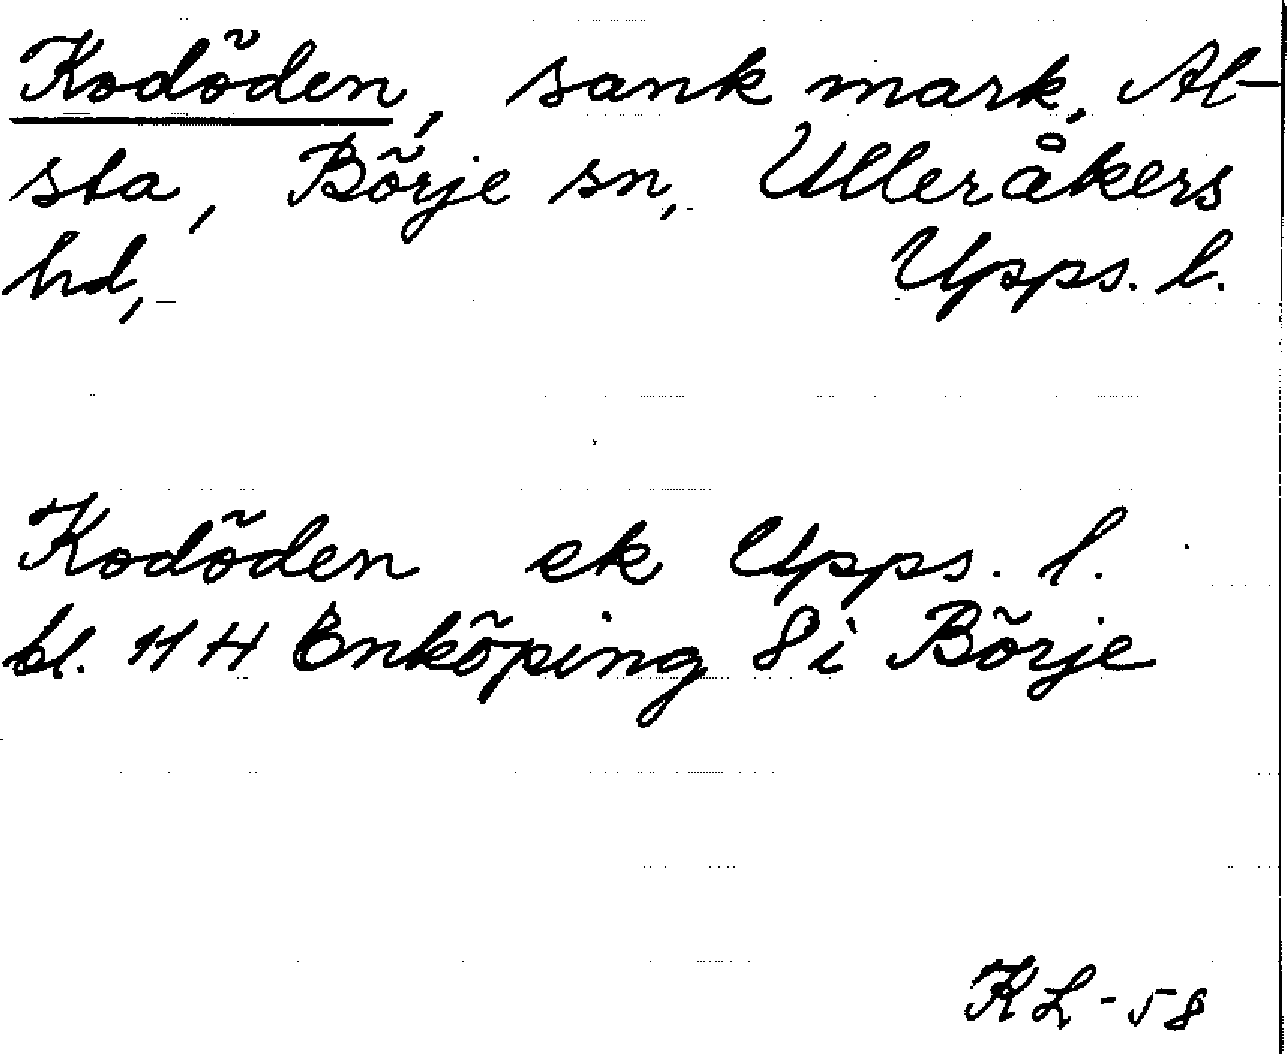 Kodöden, sank mark, Al-
sta, Börje sn, Ulleråkers
hd, Upps. l.
Kodöden ek Upps. l.
bl. 11 H Enköping 8i Börje
KL-58